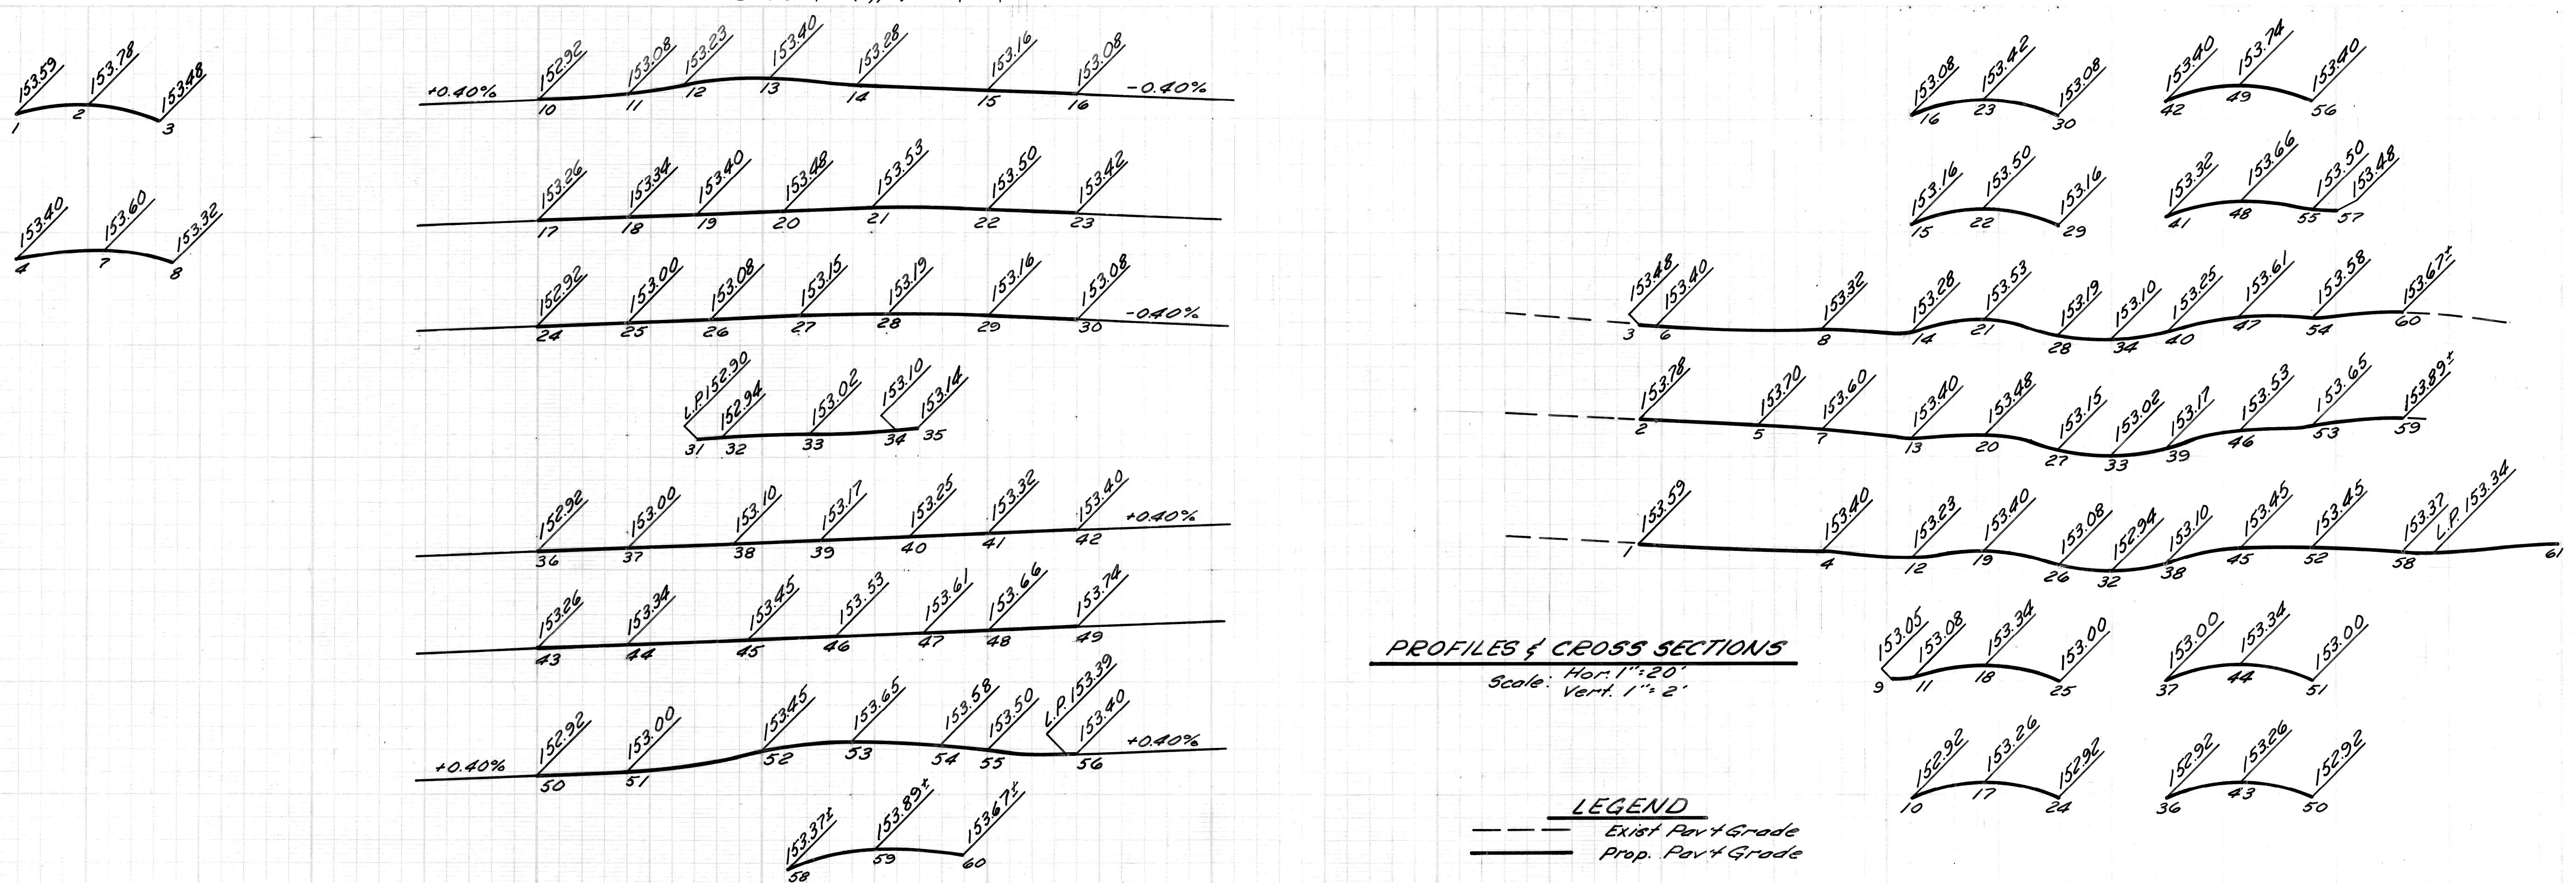 153.59 153.78 153.48
1 2 3
153.40 153.60 153.32
4 7 8
+0.40% 152.92 153.08 153.23 153.40 153.28 153.16 153.08 -0.40%
10 11 12 13 14 15 16
153.26 153.34 153.40 153.48 153.53 153.50 153.42
17 18 19 20 21 22 23
152.92 153.00 153.08 153.15 153.19 153.16 153.08 -0.40%
24 25 26 27 28 29 30
L.P. 152.90 152.94 153.02 153.10 153.14
31 32 33 34 35
152.92 153.00 153.10 153.17 153.25 153.32 153.40 +0.40%
36 37 38 39 40 41 42
153.26 153.34 153.45 153.53 153.61 153.66 153.74
43 44 45 46 47 48 49
+0.40% 152.92 153.00 153.45 153.65 153.58 153.50 L.P. 153.39 153.40 +0.40%
50 51 52 53 54 55 56
153.37± 153.89± 153.67±
58 59 60
153.08 153.42 153.08
16 23 30
153.40 153.74 153.40
42 49 56
153.16 153.50 153.16
15 22 29
153.32 153.66 153.50 153.48
41 48 55 57
153.48 153.40 153.32 153.28 153.53 153.19 153.10 153.25 153.61 153.58 153.67±
3 6 8 14 21 28 34 40 47 54 60
153.78 153.70 153.60 153.40 153.48 153.15 153.02 153.17 153.53 153.65 153.89±
2 5 7 13 20 27 33 39 46 53 59
153.59 153.40 153.23 153.40 153.08 152.94 153.10 153.45 153.45 153.37 L.P. 153.34
1 4 12 19 26 32 38 45 52 58 61
153.05 153.08 153.34 153.00
9 11 18 25
153.00 153.34 153.00
37 44 51
152.92 153.26 152.92
10 17 24
152.92 153.26 152.92
36 43 50
PROFILES & CROSS SECTIONS
Scale: Hor. 1"=20'
Vert. 1"=2'
LEGEND
Exist Pav't Grade
Prop. Pav't Grade